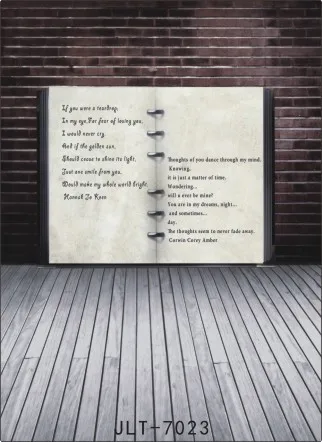 If you were a teardrop;
In my eye,For fear of losing you,
I would never cry
And if the golden sun,
Should cease to shine its light,
Just one smile from you,
Would make my whole world bright,
Hannah Jo Keen
Thoughts of you dance through my mind.
Knowing,
it is just a matter of time.
Wondering...
will u ever be mine?
You are in my dreams, night...
and sometimes...
day.
The thoughts seem to never fade away.
Corwin Corey Amber
JLT-7023